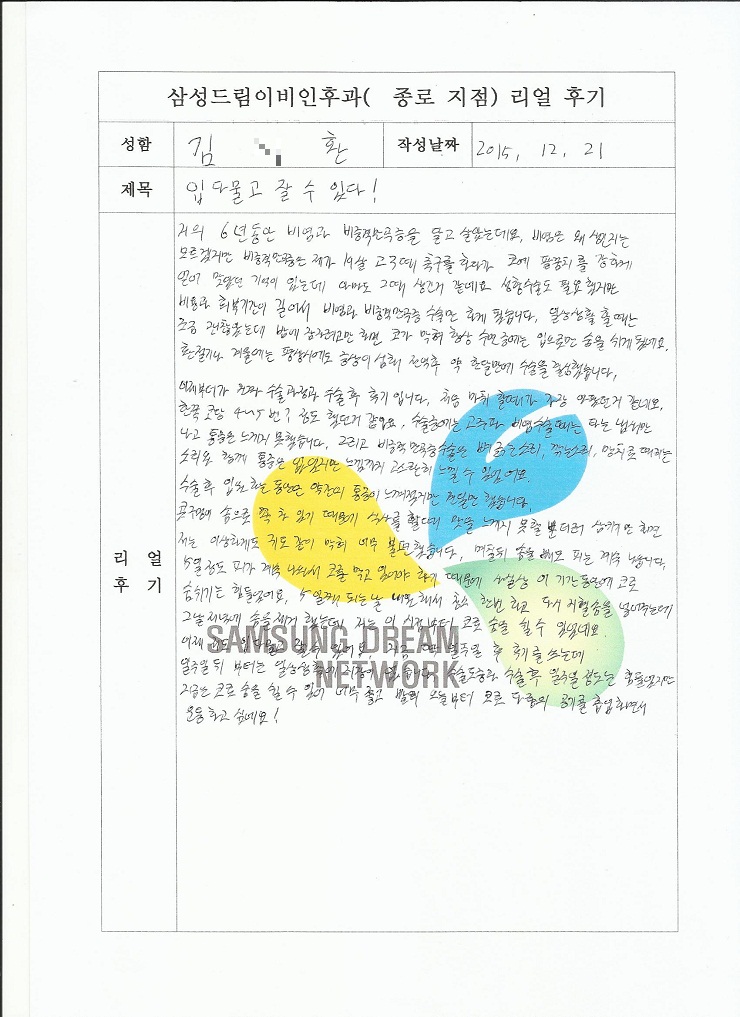 삼성드림이비인후과( 종로 지점) 리얼 후기
성함 김 환 작성날짜 2015. 12. 21
제목 입 다물고 잘 수 있다!
리 얼
후 기
거의 6년동안 비염과 비중격만곡증을 달고 살았는데요, 비염은 왜 생인지는
모르겠지만 비중격만곡증은 제가 19살 고3때 축구를 하다가 코에 팔꿈치를 강하게
맞았던 기억이 있는데 아마도 그때 생긴거 같네요 성형수술도 필요했지만
비용과 회복기간이 길어서 비염과 비중격만곡증 수술만 하게 됬습니다. 일상생활 할때는
조금 괜찮았는데 밤에 잠자려고만 하면 코가 막혀 항상 수면중에는 입으로만 숨을 쉬게 됬네요.
환절기나 겨울에는 평상시에도 증상이 심해 전역후 약 한달만에 수술을 결심했습니다.
이제부터가 진짜 수술과정과 수술후 후기 입니다. 처음 마취 할때가 가장 아팠던거 같네요.
한쪽 콧당 4~5번? 정도 했던거 같아요. 수술중에는 고주파 비염수술때는 타는 냄새만
나고 통증은 느끼지 못했습니다. 그리고 비중격만곡증수술은 뼈 긁는소리, 깎는소리, 망치로 때리는
소리와 함께 통증은 없었지만 느낌까지 고스란히 느낄 수 있었어요.
수술후 입원 하는 동안은 약간의 통증이 느껴졌지만 견딜만 했습니다.
콧구멍에 솜으로 꽉 차 있기 때문에 식사를 할때 맛을 느끼지 못할 뿐더러 삼키기만 하면
저는 이상하게도 귀도 같이 막혀 너무 불편했습니다. 며칠뒤 솜을 빼도 피는 계속 납니다.
5일정도 피가 계속 나와서 코를 막고 있어야 하기 때문에 사실상 이 기간동안에 코로
숨쉬기는 힘들었어요. 5일째 되는날 내원해서 청소 한번 하고 다시 지혈솜을 넣어주는데
그날 저녁에 솜을 제거 했는데 저는 이 시점부터 코로 숨을 쉴 수 있었네요.
이제 입다물고 잘 수 있어요. 지금 일주일 후 후기를 쓰는데
일주일 뒤 부터는 일상생활에 지장이 수술도중과 수술후 일주일 정도는 힘들었지만
지금은 코로 숨을 쉴 수 있어 너무 좋고 빨리 오늘부터 코로 다량의 공기를 흡입하면서
운동하고 싶네요!
SAMSUNG DREAM
NETWORK